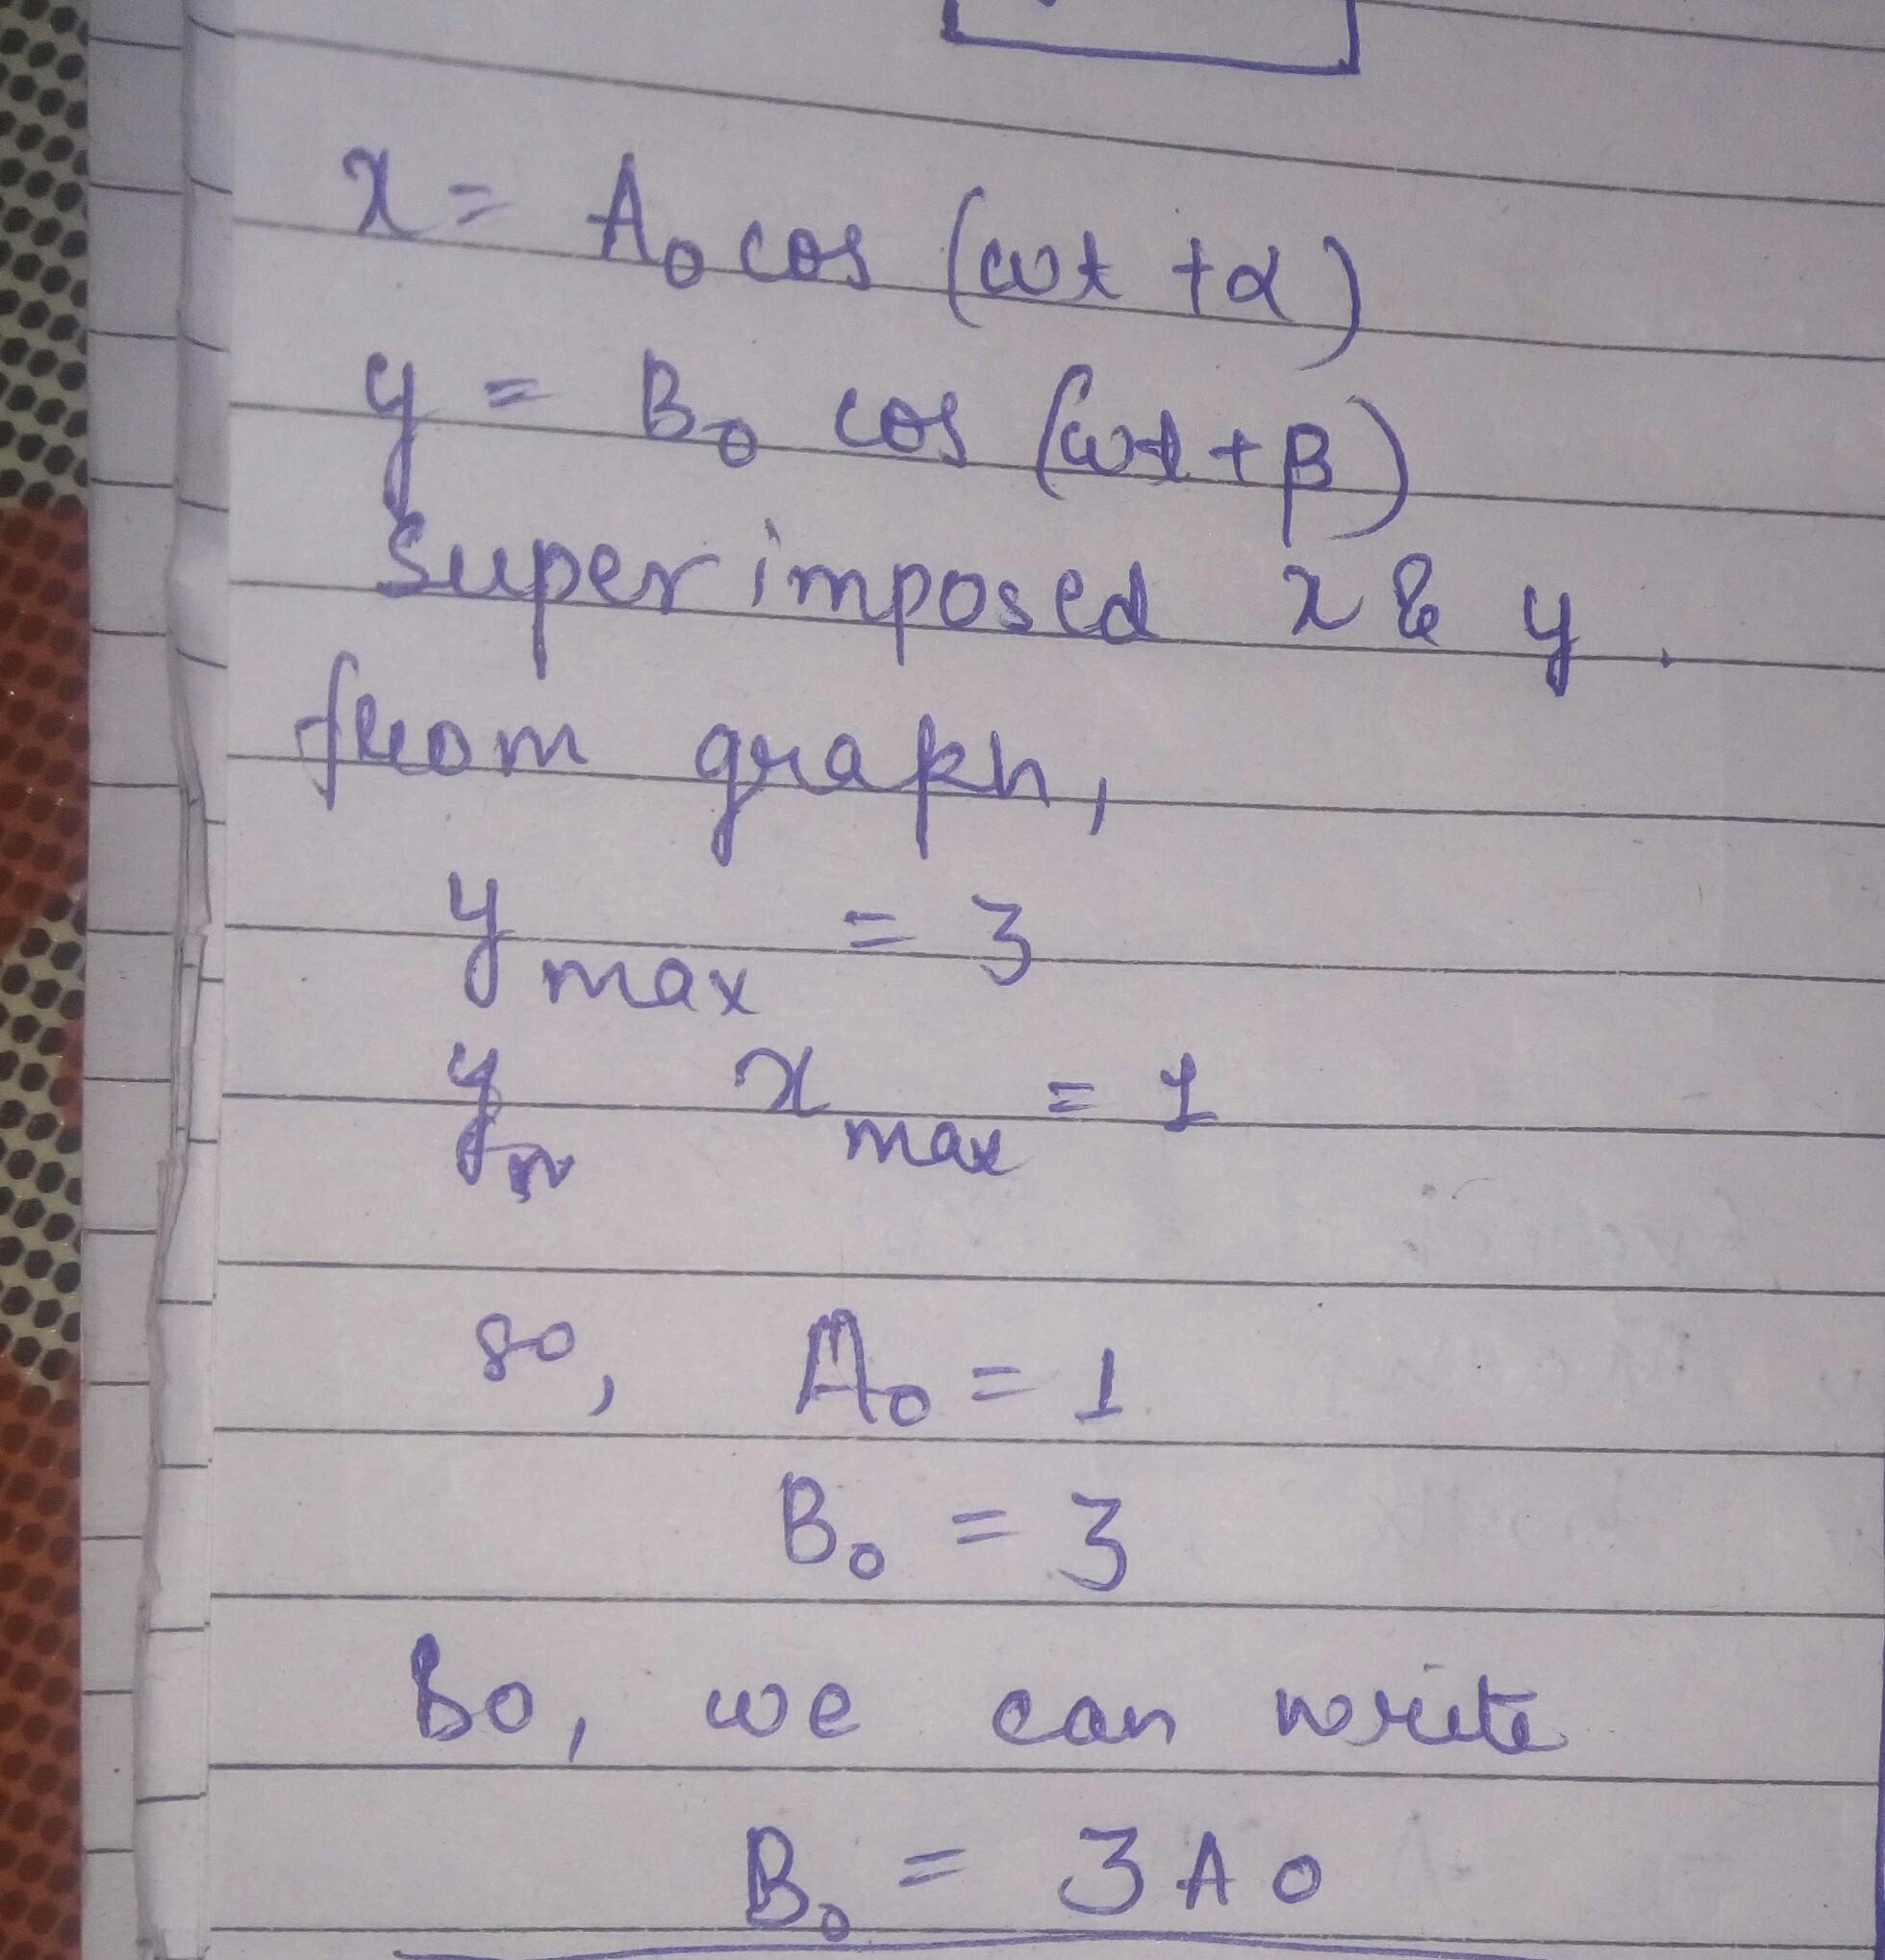 x = A₀ cos (ωt + α)
y = B₀ cos (ωt + β)
Superimposed x & y.
from graph,
y max = 3
x max = 1
so, A₀ = 1
B₀ = 3
So, we can write
B₀ = 3A₀